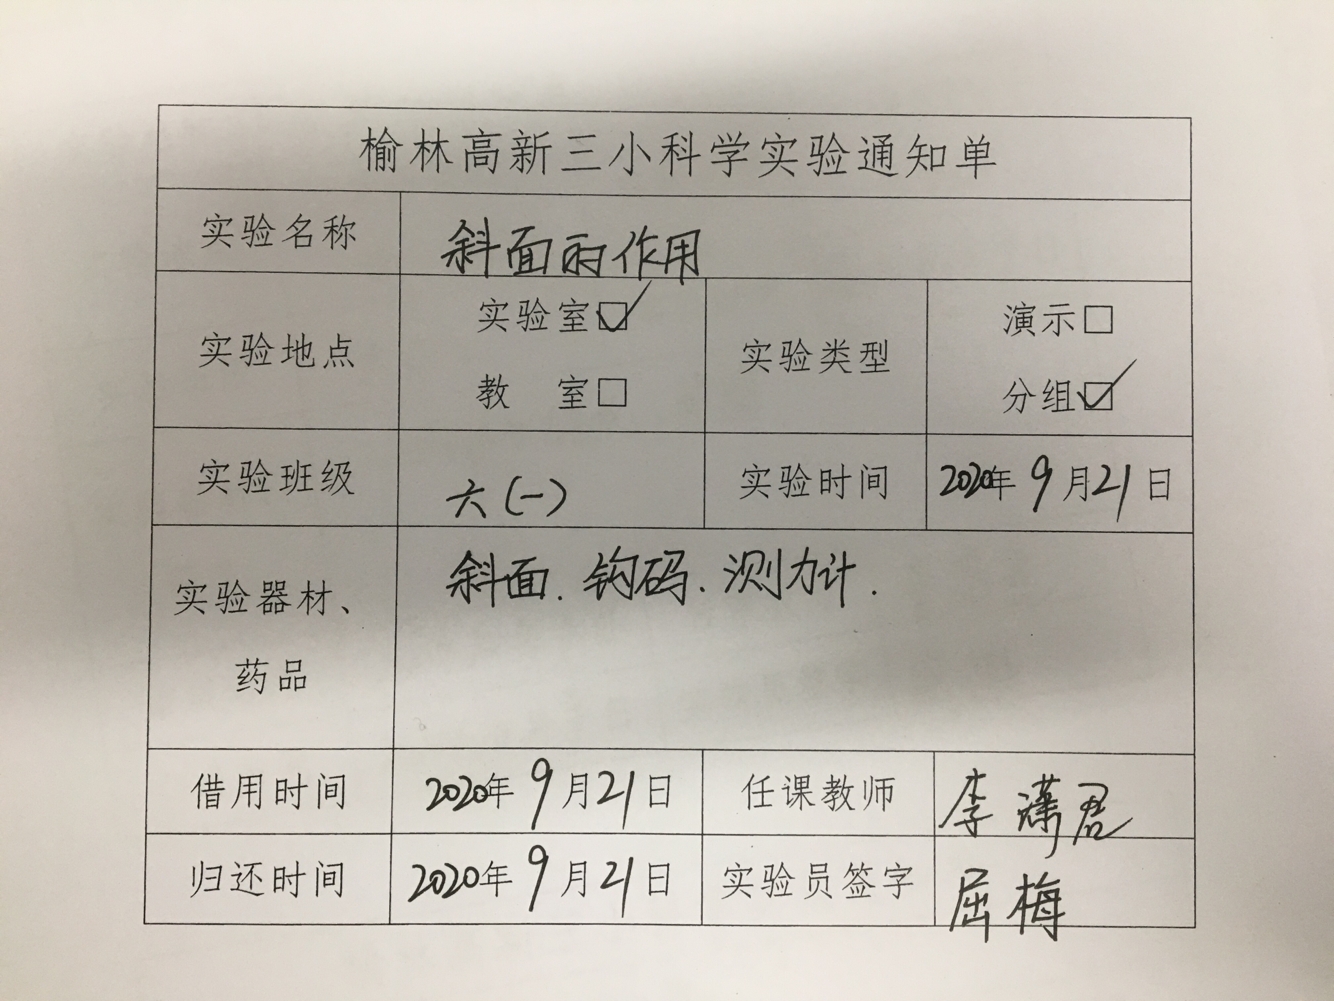 榆林高新三小科学实验通知单
实验名称 斜面的作用
实验地点 实验室☑ 教 室□ 实验类型 演示□ 分组☑
实验班级 六(一) 实验时间 2020年9月21日
实验器材、药品 斜面、钩码、测力计.
借用时间 2020年9月21日 任课教师 李潇君
归还时间 2020年9月21日 实验员签字 屈梅